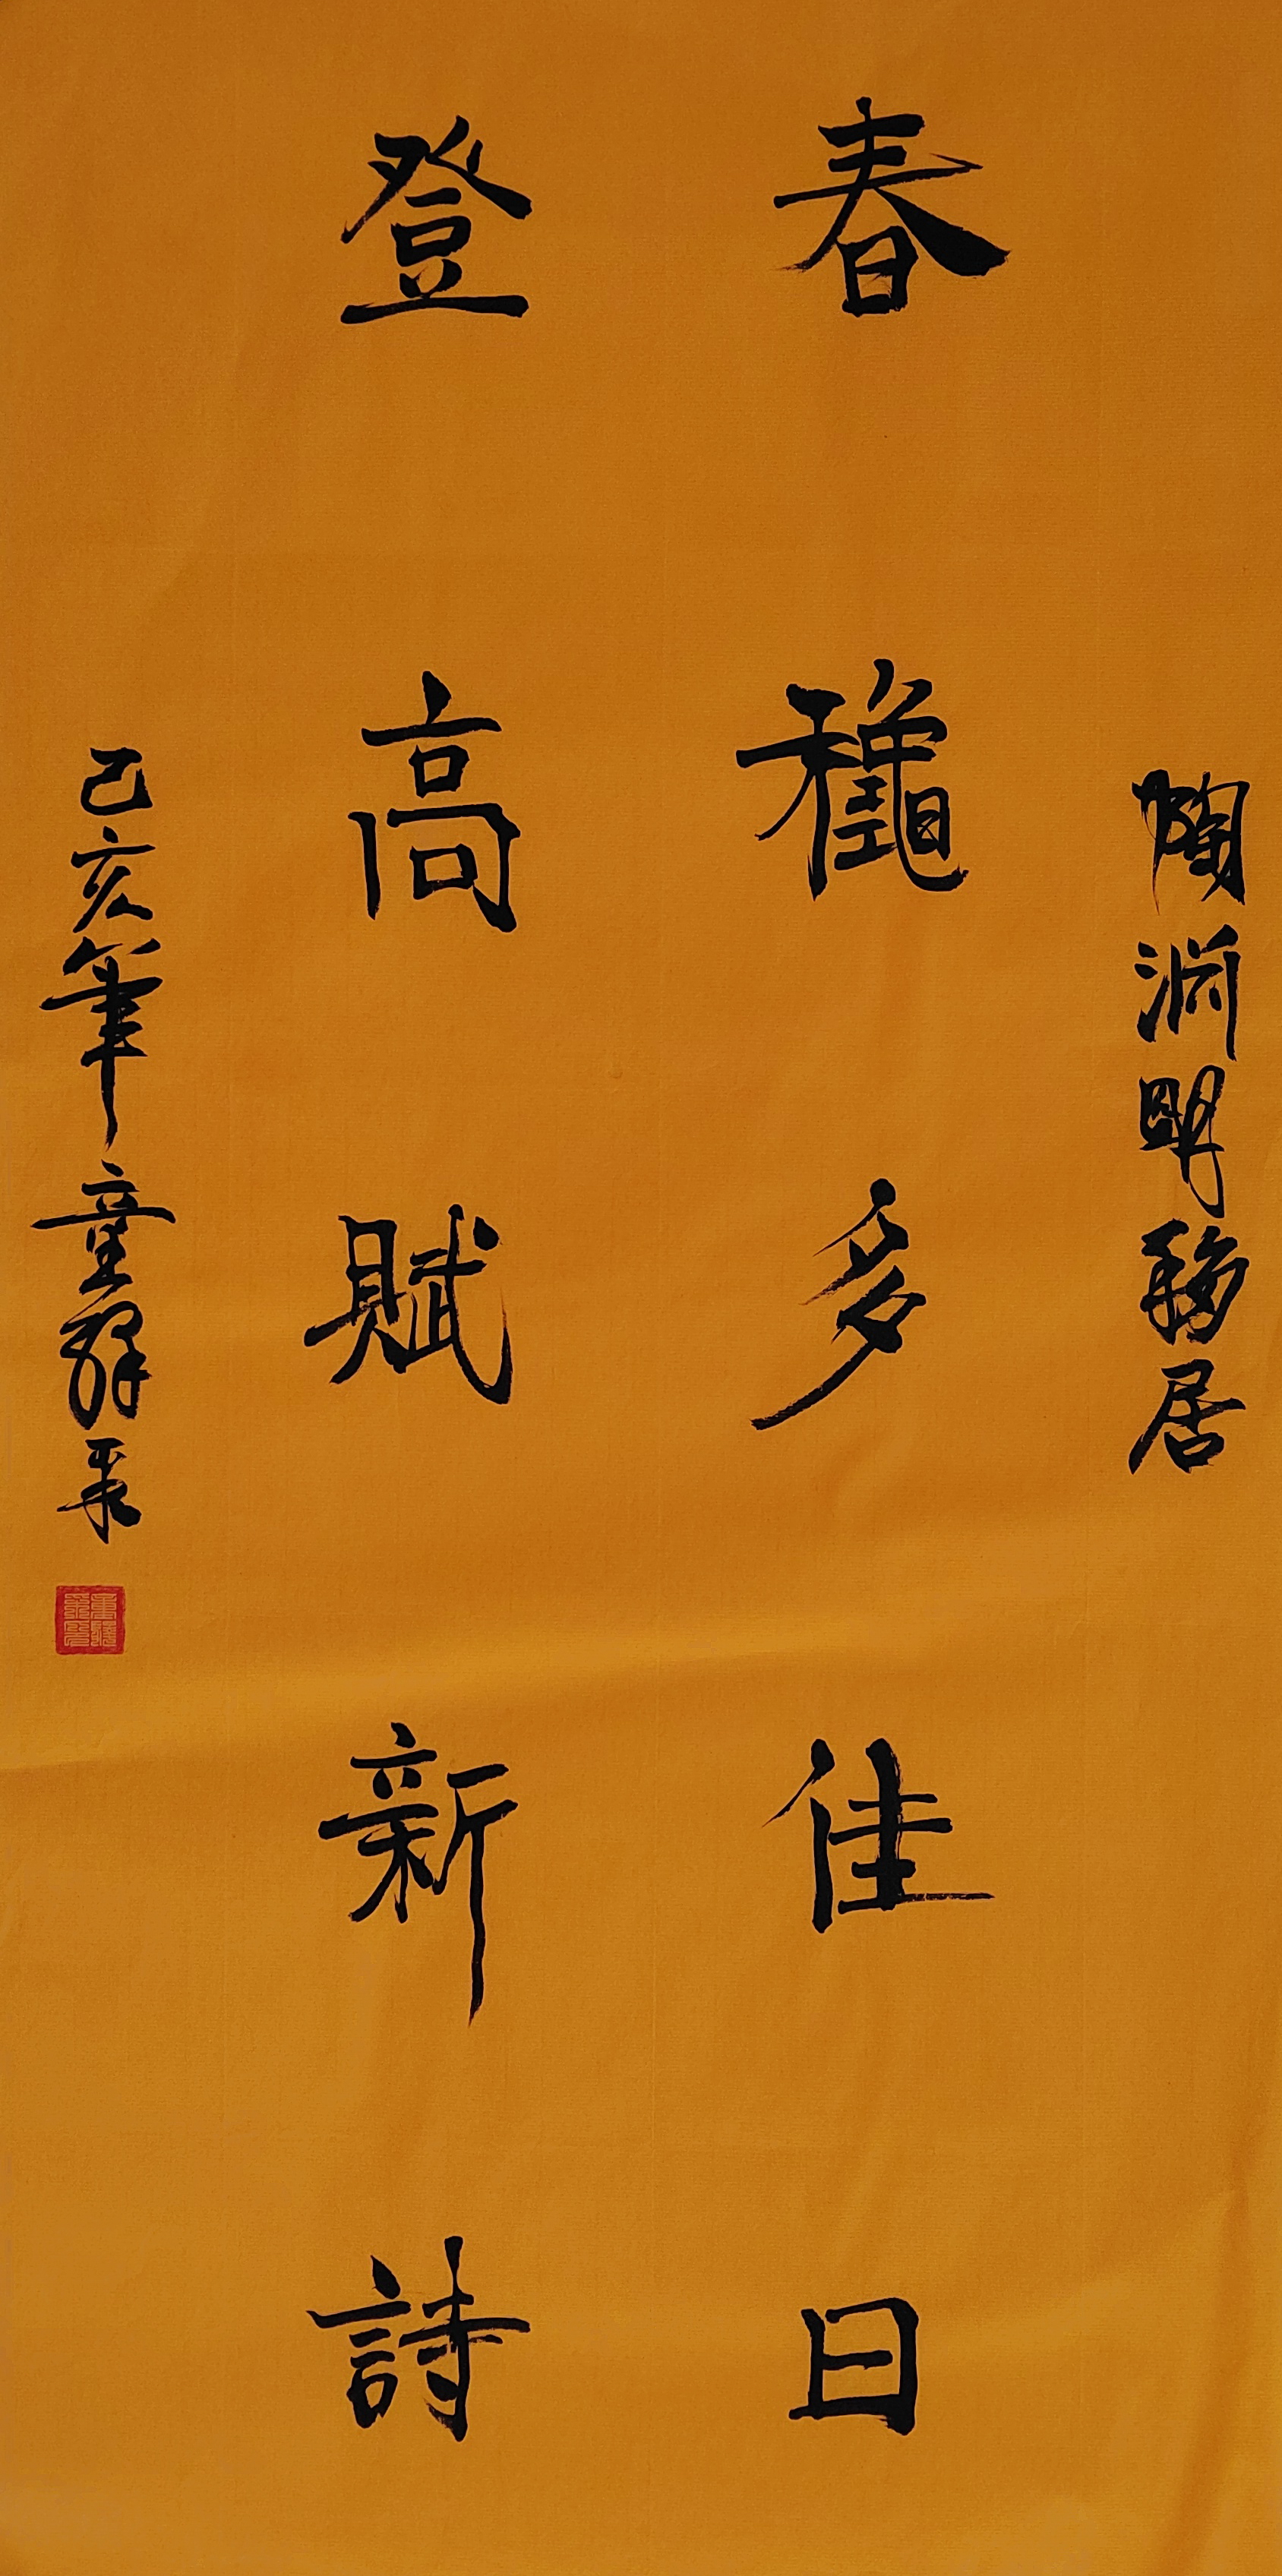 陶渊明移居
春龝多佳日
登高賦新詩
己亥年童辉